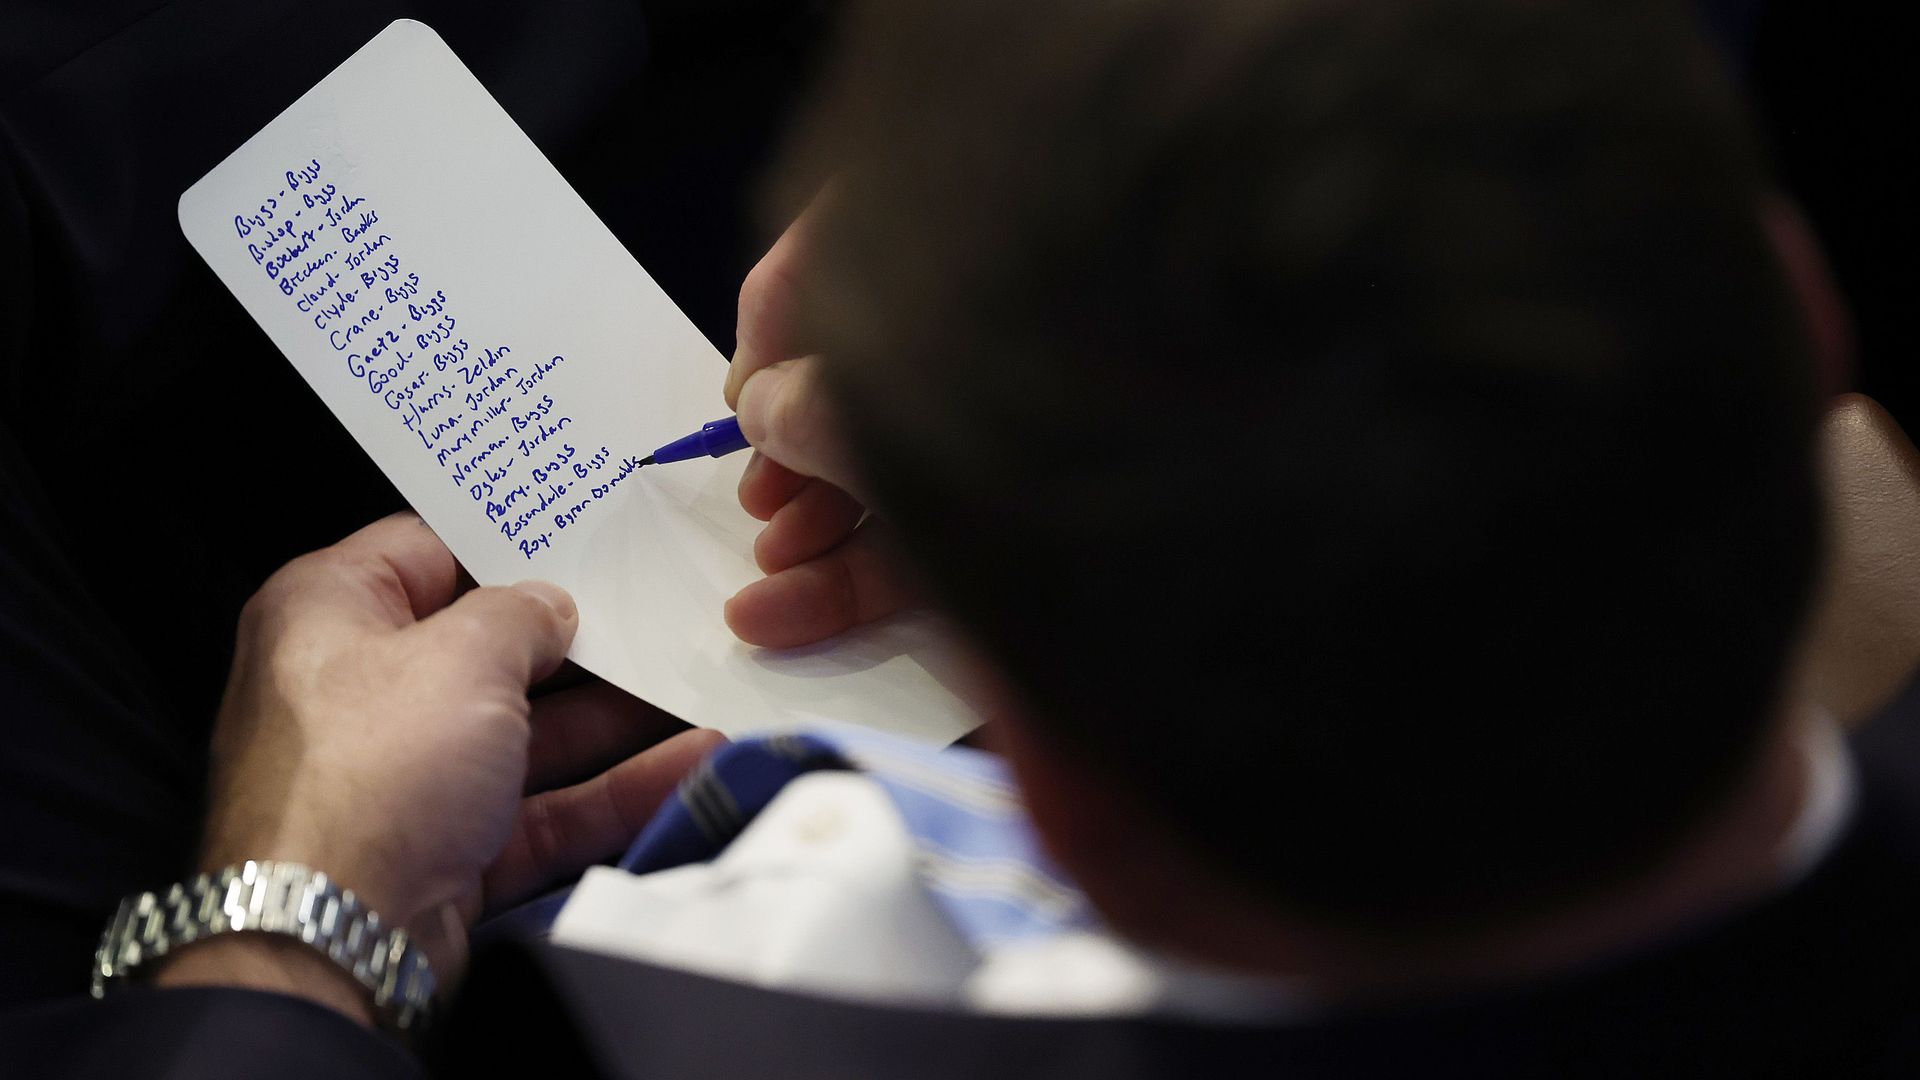 Biggs - Biggs
Bishop - Biggs
Boebert - Jordan
Brecheen - Banks
Cloud - Jordan
Clyde - Biggs
Crane - Biggs
Gaetz - Biggs
Good - Biggs
Gosar - Biggs
Harris - Zeldin
Luna - Jordan
Mary Miller - Jordan
Norman - Biggs
Ogles - Jordan
Perry - Biggs
Rosendale - Biggs
Roy - Byron Donalds